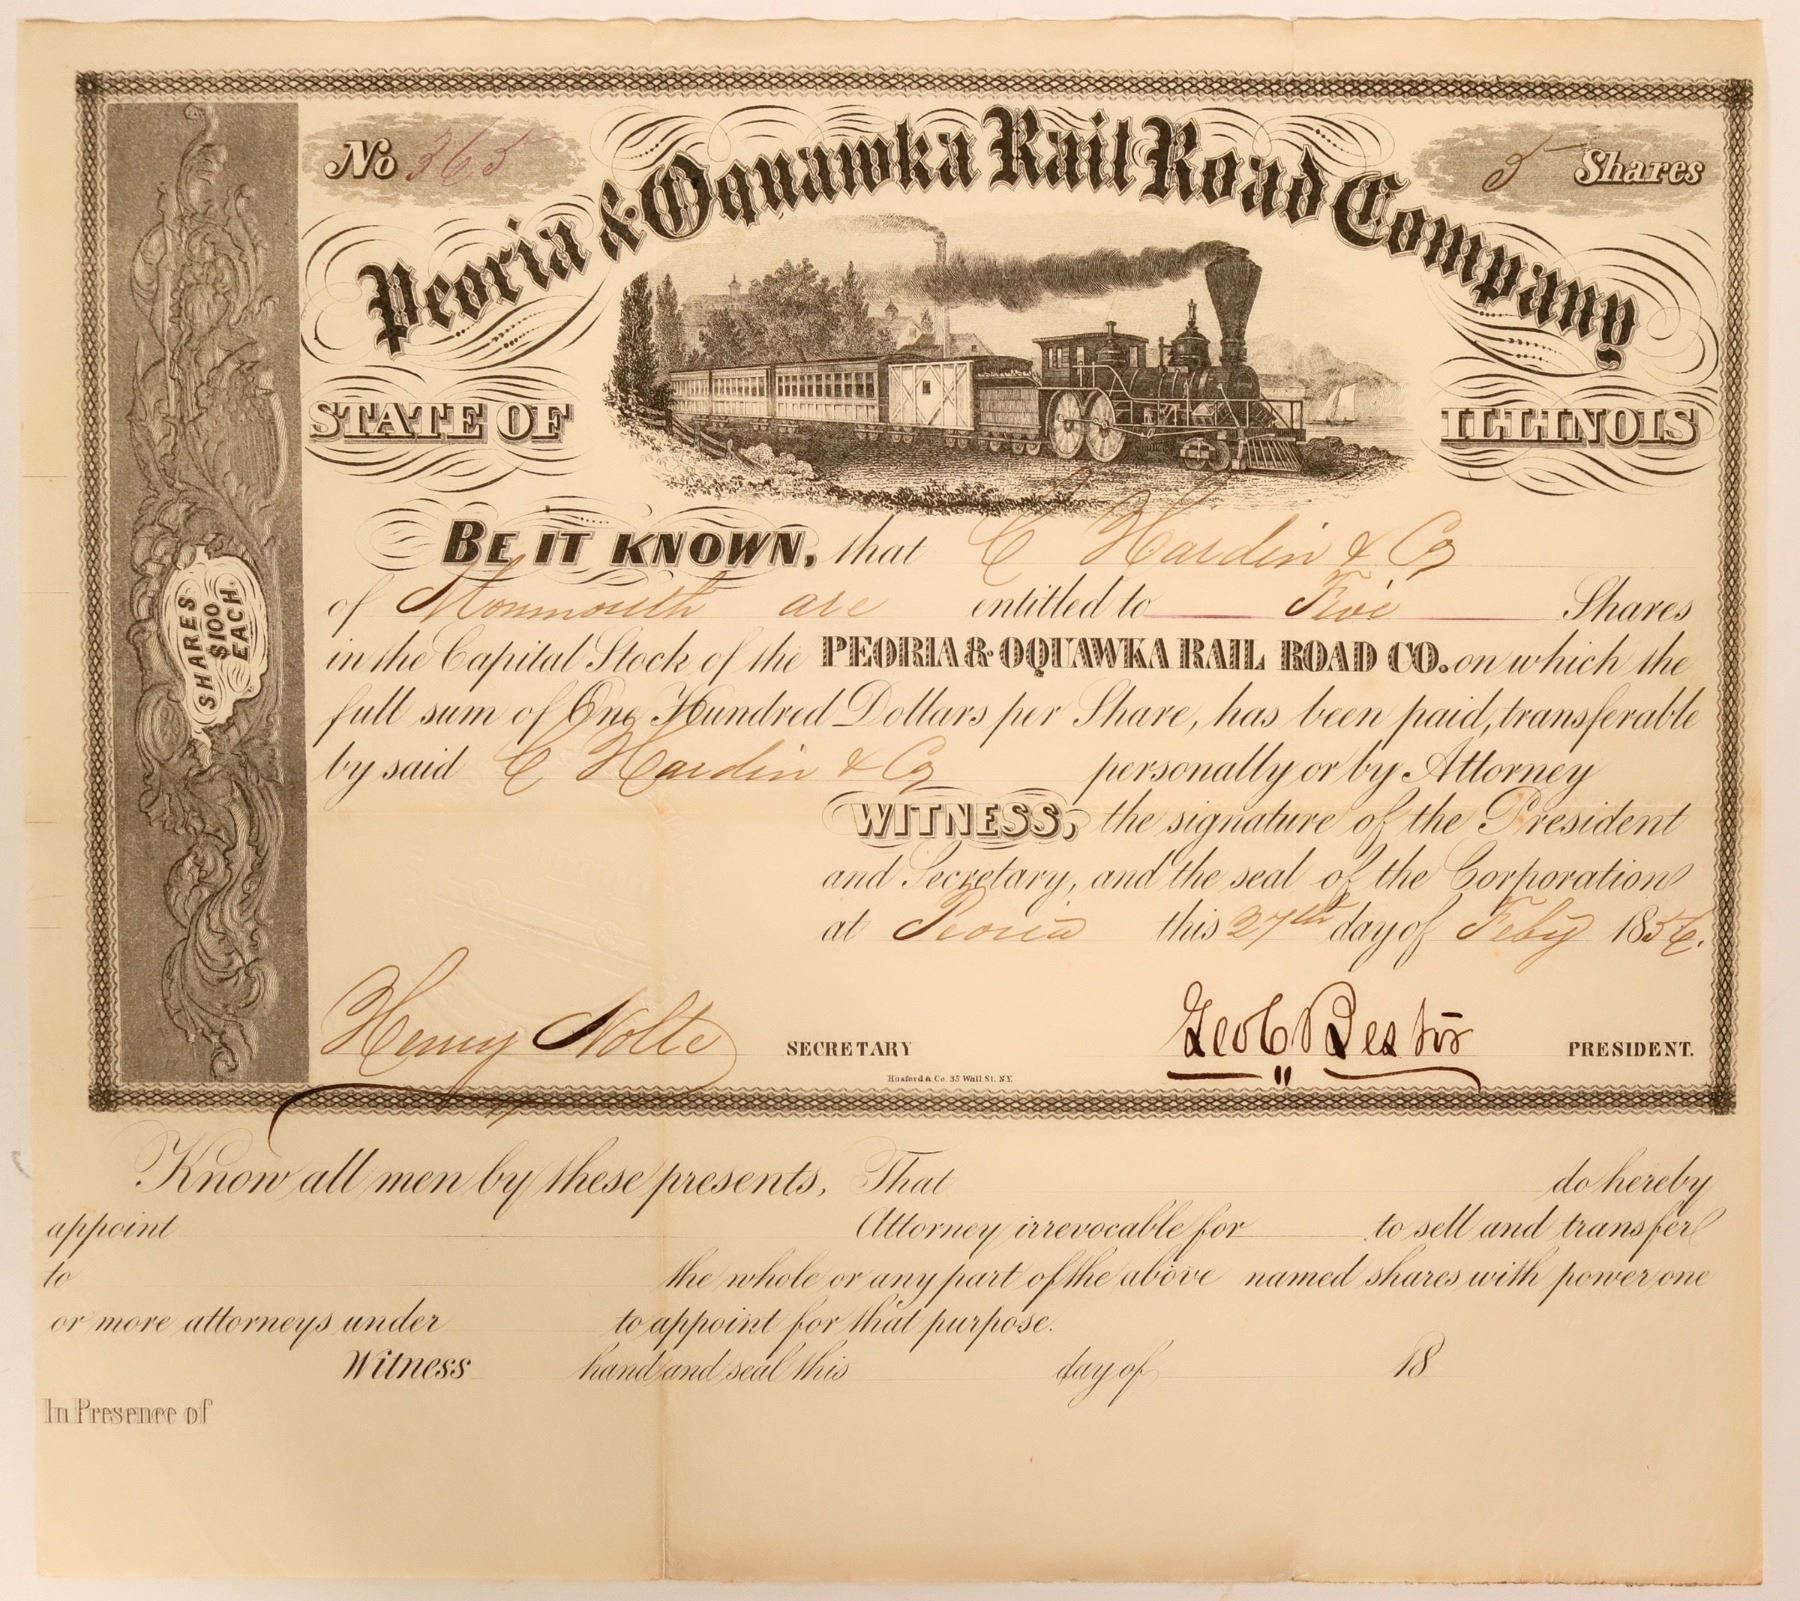 No 365
5 Shares
Peoria & Oquawka Rail Road Company
STATE OF ILLINOIS
SHARES
$100
EACH.
BE IT KNOWN, that C Hardin & Co
of Monmouth are entitled to Five Shares
in the Capital Stock of the PEORIA & OQUAWKA RAIL ROAD CO. on which the
full sum of One Hundred Dollars per Share, has been paid, transferable
by said C Hardin & Co personally or by Attorney
WITNESS, the signature of the President
and Secretary, and the seal of the Corporation
at Peoria this 27th day of Feby 1856.
Henry Nolte SECRETARY
Geo C Bestor PRESIDENT.
Hosford & Co. 35 Wall St. N.Y.
Know all men by these presents, That do hereby
appoint Attorney irrevocable for to sell and transfer
to the whole or any part of the above named shares with power one
or more attorneys under to appoint for that purpose.
Witness hand and seal this day of 18
In Presence of